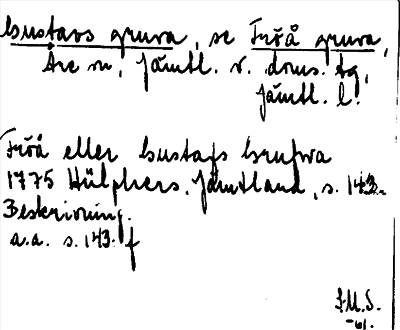 Gustavs gruva, se Fröå gruva,
Åre sn, Jämtl. v. doms. tg,
Jämtl. l.
Fröå eller Gustafs Grufwa
1775 Hülphers, Jämtland, s. 143.
Beskrivning.
a.a. s. 143 f
I.M.S.
-61.